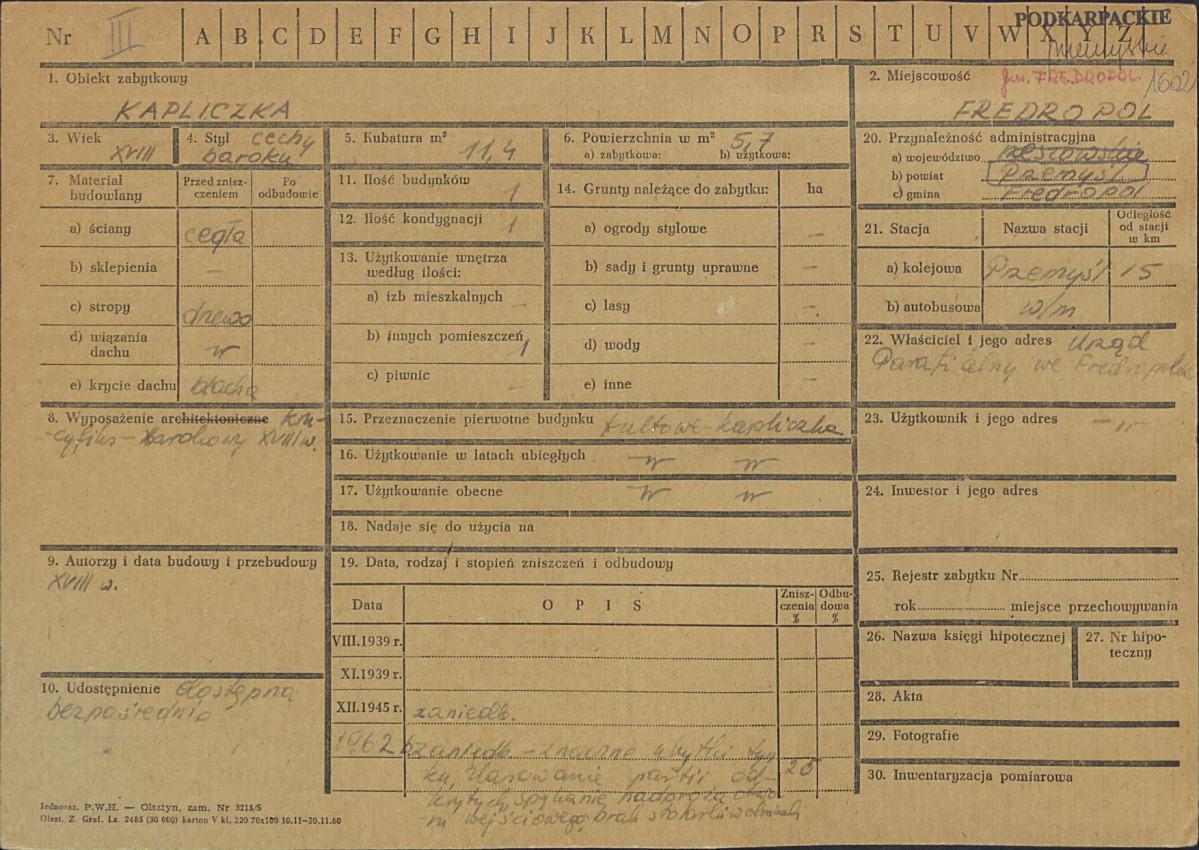 Nr III A B C D E F G H I J K L M N O P R S T U V W X Y Z
PODKARPACKIE
przemyskie
1. Obiekt zabytkowy
KAPLICZKA
2. Miejscowość gm. FREDROPOL 1602
FREDROPOL
3. Wiek
XVIII
4. Styl cechy
baroku
5. Kubatura m³
11,4
6. Powierzchnia w m² 5,7
a) zabytkowa: b) użytkowa:
7. Materiał budowlany
Przed zniszczeniem
Po odbudowie
a) ściany cegła
b) sklepienia –
c) stropy drewo
d) wiązania dachu "
e) krycie dachu blacha
8. Wyposażenie architektoniczne kru-
-cyfiks – barokowy XVIII w.
9. Autorzy i data budowy i przebudowy
XVIII w.
10. Udostępnienie dostępna
bezpośrednio
11. Ilość budynków 1
12. Ilość kondygnacji 1
13. Użytkowanie wnętrza
według ilości:
a) izb mieszkalnych –
b) innych pomieszczeń 1
c) piwnic –
14. Grunty należące do zabytku: ha
a) ogrody stylowe –
b) sady i grunty uprawne –
c) lasy –
d) wody –
e) inne –
15. Przeznaczenie pierwotne budynku kultowe - kapliczka
16. Użytkowanie w latach ubiegłych " "
17. Użytkowanie obecne " "
18. Nadaje się do użycia na
19. Data, rodzaj i stopień zniszczeń i odbudowy
Data OPIS Zniszczenia % Odbudowa %
VIII.1939 r.
XI.1939 r.
XII.1945 r. zaniedb.
1962 r. zaniedb. – znaczne ubytki tyn-
ku, lasowanie partii od- 25
krytych, spękanie nadproża otwo-
ru wejściowego, brak stolarki w oknach
20. Przynależność administracyjna
a) województwo rzeszowskie
b) powiat Przemyśl
c) gmina Fredropol
21. Stacja Nazwa stacji Odległość od stacji w km
a) kolejowa Przemyśl 15
b) autobusowa w/m
22. Właściciel i jego adres Urząd
Parafialny we Fredropolu
23. Użytkownik i jego adres – „ –
24. Inwestor i jego adres
25. Rejestr zabytku Nr
rok miejsce przechowywania
26. Nazwa księgi hipotecznej
27. Nr hipoteczny
28. Akta
29. Fotografie
30. Inwentaryzacja pomiarowa
Jednoraz. P.W.H. — Olsztyn, zam. Nr 3215/S
Olszt. Z. Graf. Lz. 2485 (30 000) karton V kl. 220 70x100 10.11-30.11.60